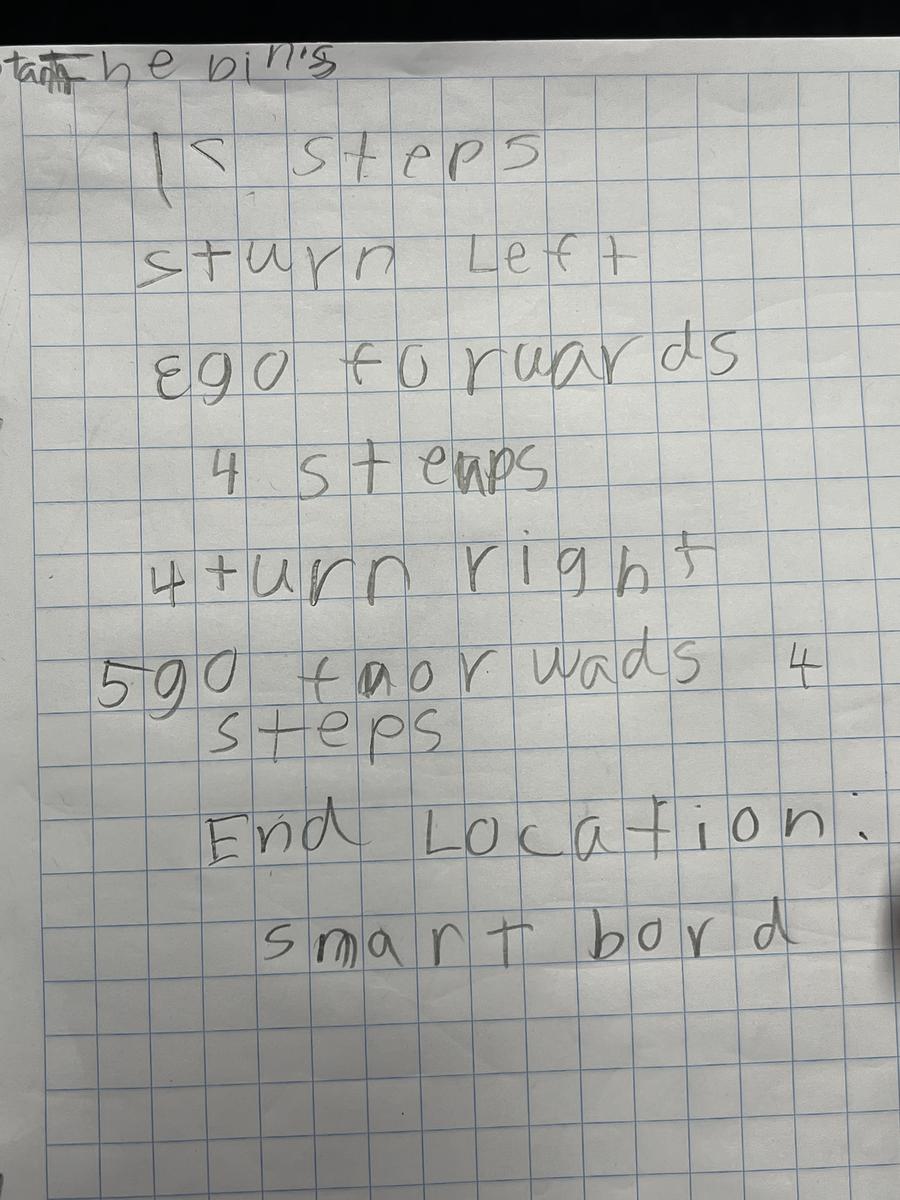 the bin's
15 steps
sturn Left
3go forwards
4 steps
4turn right
5go forwads 4
steps
End Location:
smart bord